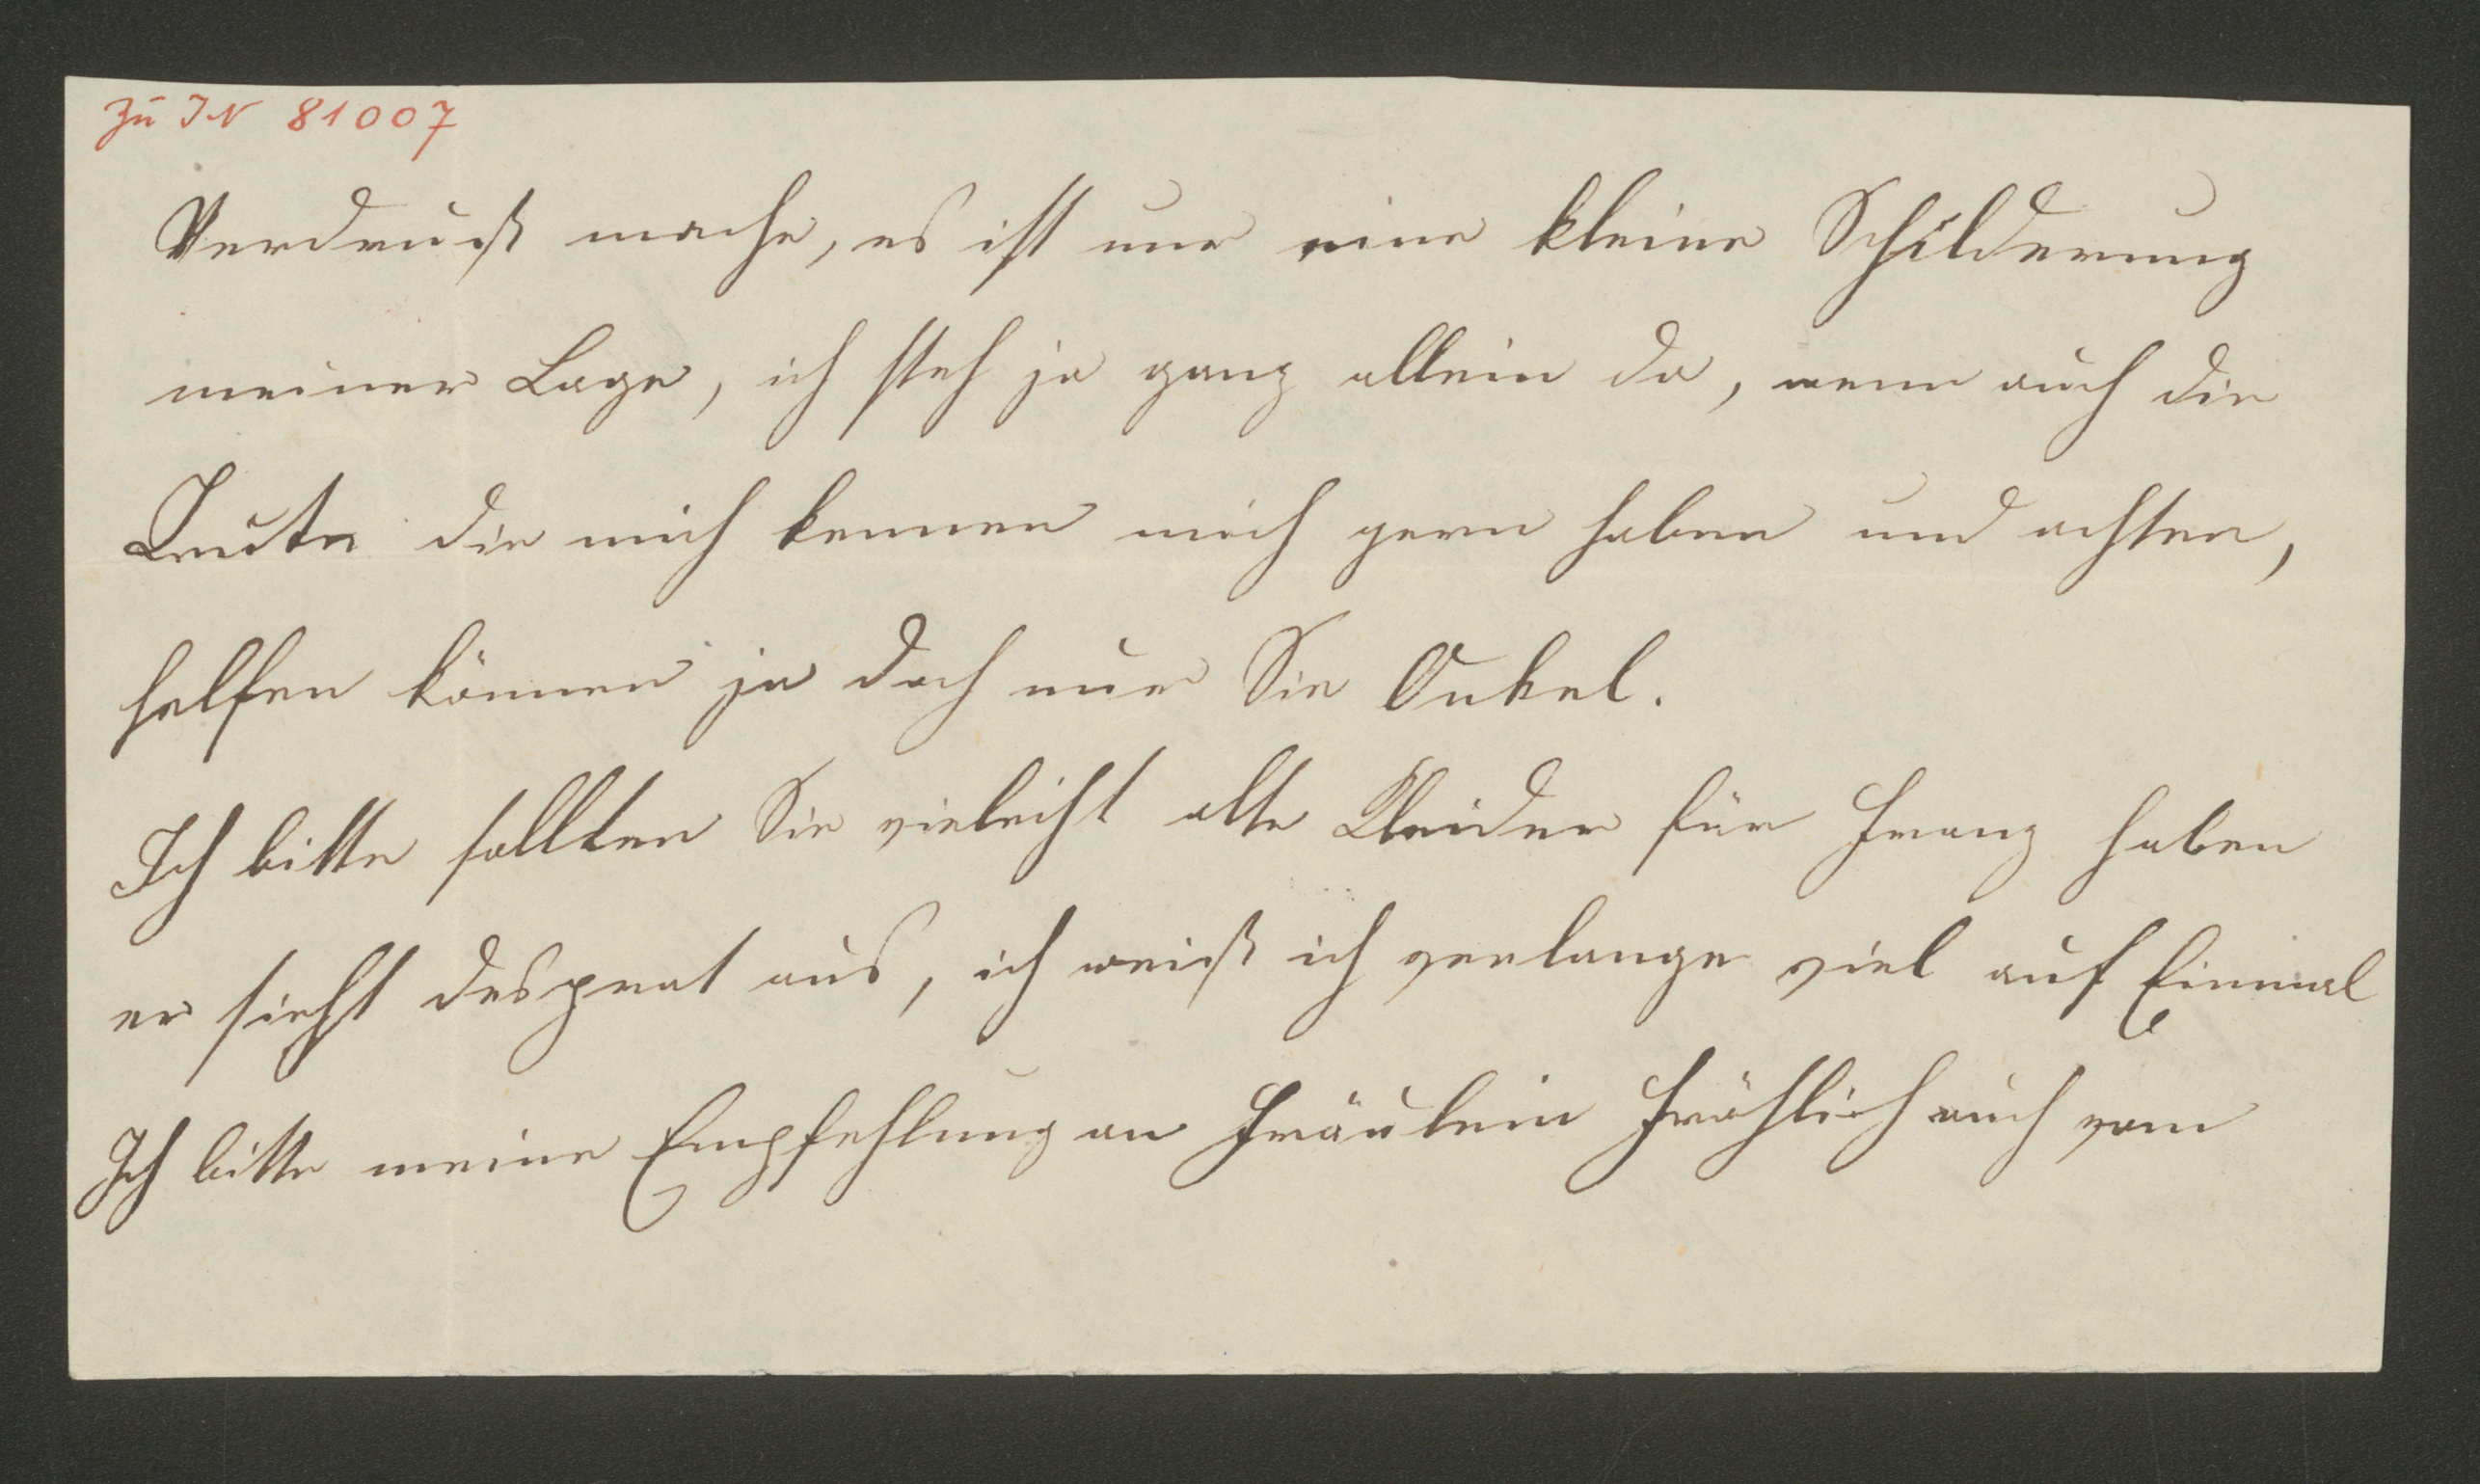 Zu IN 81007
Verdruß mache, es ist nur eine kleine Schilderung
meiner Lage, ich steh ja ganz allein da, wenn auch die
Leute die mich kennen mich gern haben und achten,
helfen können ja doch nur Sie Onkel.
Ich bitte sollten Sie vieleicht alte Kleider für Franz haben
er sieht desprat aus, ich weiß ich verlange viel auf Einmal
Ich bitte meine Empfehlung an Fräulein Fröhlich auch vom